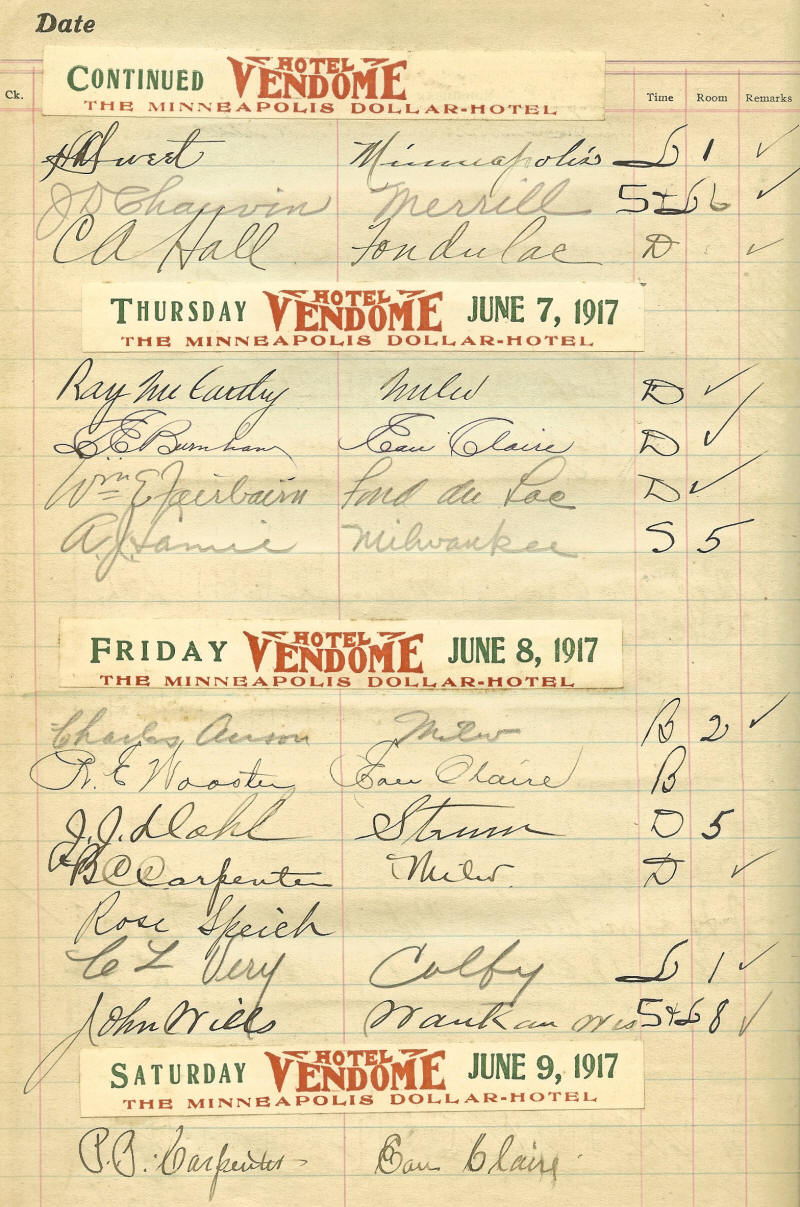 Date
Ck. Time Room Remarks
CONTINUED HOTEL VENDOME
THE MINNEAPOLIS DOLLAR-HOTEL
Sweet Minneapolis L 1 ✓
J D Chauvin Merrill S+L 6 ✓
C A Hall Fondulac D ✓
THURSDAY HOTEL VENDOME JUNE 7, 1917
THE MINNEAPOLIS DOLLAR-HOTEL
Ray McCarthy Milw D ✓
E Burnham Eau Claire D ✓
Wm E Fairbairn Fond du Lac D ✓
A. J. Milwaukee S 5
FRIDAY HOTEL VENDOME JUNE 8, 1917
THE MINNEAPOLIS DOLLAR-HOTEL
Charles Anson Milw B 2 ✓
R. E Wooster Eau Claire B
J. J. Dahl Strum D 5
B C Carpenter Milw. D ✓
Rose Speich
C L Very Colby L 1 ✓
John Wills Waukau Wis S+L 8 ✓
SATURDAY HOTEL VENDOME JUNE 9, 1917
THE MINNEAPOLIS DOLLAR-HOTEL
P. B. Carpenter Eau Claire